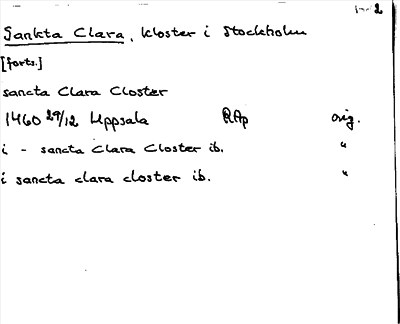 2
Sankta Clara, kloster i Stockholm
[forts.]
sancta Clara Closter
1460 29/12 Uppsala RAp orig.
i - sancta Clara Closter ib. "
i sancta clara closter ib. "